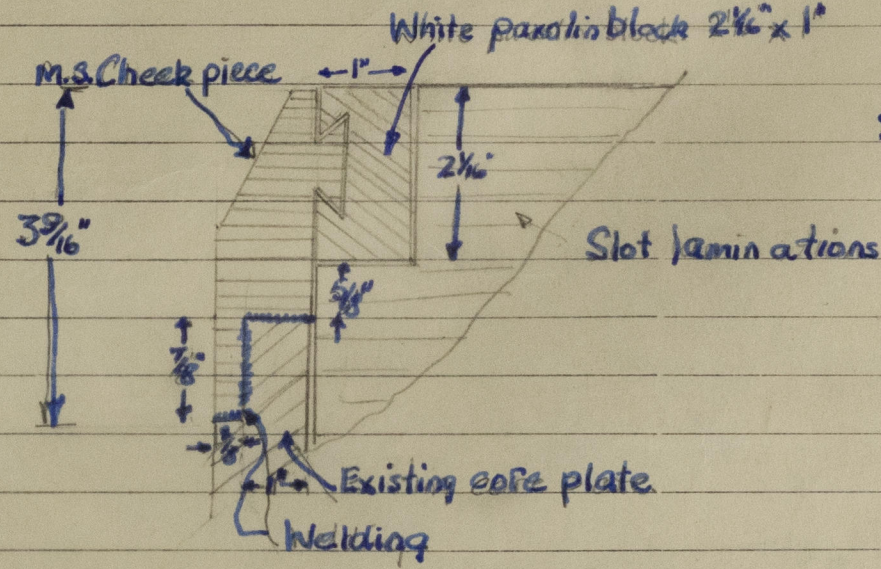 White paxolin block 2 1/16" x 1"
M.S. Cheek piece
1"
2 1/16"
3 9/16"
Slot laminations
5/8"
7/8"
Existing core plate
Welding